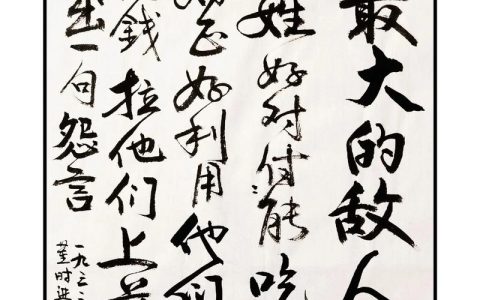 最大的敌人
姓好对付能吃
正好利用他们
錢拉他们上
出一句怨言
一九三二
董时进